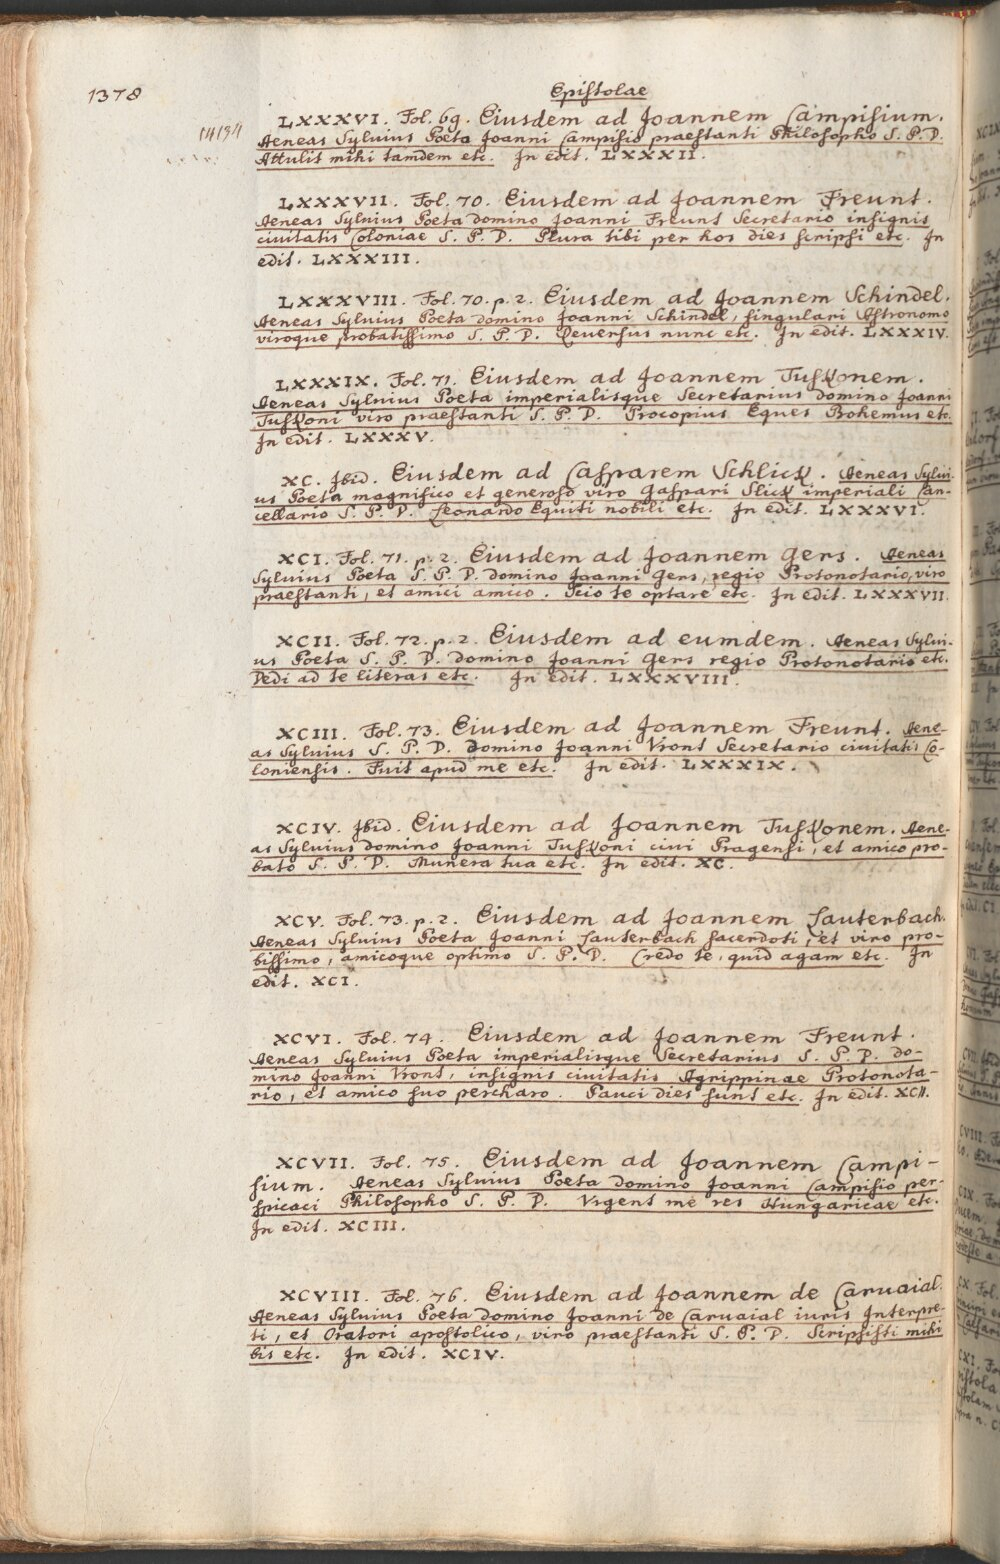 1378
Epistolae
LXXXVI. Fol. 69. Eiusdem ad Joannem Campisium.
14134
Aeneas Sylvius Poeta Joanni Campisio praestanti Philosopho S. P. D.
Attulit mihi tamdem etc. In edit. LXXXII.
LXXXVII. Fol. 70. Eiusdem ad Joannem Freunt.
Aeneas Sylvius Poeta domino Joanni Freunt Secretario insignis
civitatis Coloniae S. P. D. Plura tibi per hos dies scripsi etc. In
edit. LXXXIII.
LXXXVIII. Fol. 70. p. 2. Eiusdem ad Joannem Schindel.
Aeneas Sylvius Poeta domino Joanni Schindel, singulari Astronomo
viroque probatissimo S. P. D. Reversus nunc etc. In edit. LXXXIV.
LXXXIX. Fol. 71. Eiusdem ad Joannem Tuskonem.
Aeneas Sylvius Poeta imperialisque Secretarius domino Joanni
Tuskoni viro praestanti S. P. D. Procopius Eques Bohemus etc.
In edit. LXXXV.
XC. Ibid. Eiusdem ad Casparem Schlick. Aeneas Sylvi-
us Poeta magnifico et generoso viro Gaspari Slick imperiali Can-
cellario S. P. D. Leonardo Equiti nobili etc. In edit. LXXXVI.
XCI. Fol. 71. p. 2. Eiusdem ad Joannem Gers. Aeneas
Sylvius Poeta S. P. D. domino Joanni Gers, regio Protonotario, viro
praestanti, et amici amico. Scio te optare etc. In edit. LXXXVII.
XCII. Fol. 72. p. 2. Eiusdem ad eumdem. Aeneas Sylvi-
us Poeta S. P. D. domino Joanni Gers regio Protonotario etc.
Dedi ad te literas etc. In edit. LXXXVIII.
XCIII. Fol. 73. Eiusdem ad Joannem Freunt. Aene-
as Sylvius S. P. D. Domino Joanni Vront Secretario civitatis Co-
loniensis. Fuit apud me etc. In edit. LXXXIX.
XCIV. Ibid. Eiusdem ad Joannem Tuskonem. Aene-
as Sylvius domino Joanni Tuskoni civi Pragensi, et amico pro-
bato S. P. D. Munera tua etc. In edit. XC.
XCV. Fol. 73. p. 2. Eiusdem ad Joannem Lauterbach.
Aeneas Sylvius Poeta Joanni Lauterbach sacerdoti, et viro pro-
bissimo, amicoque optimo S. P. D. Credo te, quid agam etc. In
edit. XCI.
XCVI. Fol. 74. Eiusdem ad Joannem Freunt.
Aeneas Sylvius Poeta imperialisque Secretarius S. P. D. do-
mino Joanni Vront, insignis civitatis Agrippinae Protonota-
rio, et amico suo percharo. Pauci dies sunt etc. In edit. XCII.
XCVII. Fol. 75. Eiusdem ad Joannem Campi-
sium. Aeneas Sylvius Poeta domino Joanni Campisio per-
spicaci Philosopho S. P. D. Vrgent me res Hungaricae etc.
In edit. XCIII.
XCVIII. Fol. 76. Eiusdem ad Joannem de Carvaial.
Aeneas Sylvius Poeta domino Joanni de Carvaial iuris Interpre-
ti, et Oratori apostolico, viro praestanti S. P. D. Scripsisti mihi
bis etc. In edit. XCIV.